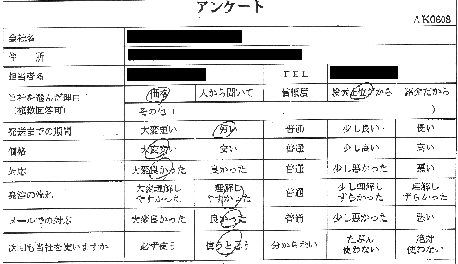 アンケート
AK0608
会社名
住 所
担当者名 TEL
当社を選んだ理由 価格 人から聞いて 信頼度 検索上位だから 紹介だから
(複数回答可) その他( )
発送までの期間 大変短い 短い 普通 少し長い 長い
価格 大変安い 安い 普通 少し高い 高い
対応 大変良かった 良かった 普通 少し悪かった 悪い
発注の流れ 大変理解しやすかった 理解しやすかった 普通 少し理解しずらかった 理解しずらかった
メールでの対応 大変良かった 良かった 普通 少し悪かった 悪い
次回も当社を使いますか 必ず使う 使うと思う 分からない たぶん使わない 絶対使わない